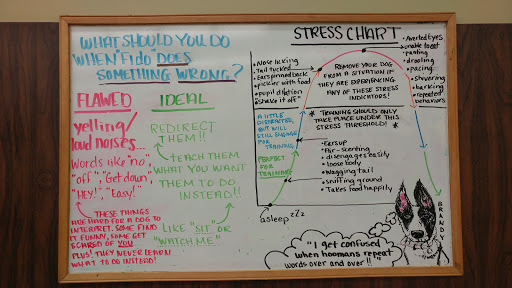 WHAT SHOULD YOU DO
WHEN Fido DOES
SOMETHING WRONG?
FLAWED
yelling/
loud noises...
Words like "no",
"off", "Get down",
"HEY!", "Easy!"
THESE THINGS
ARE HARD FOR A DOG TO
INTERPRET. SOME FIND
IT FUNNY, SOME GET
SCARED OF YOU
PLUS! THEY NEVER LEARN
WHAT TO DO INSTEAD!
IDEAL
REDIRECT
THEM!!
TEACH THEM
WHAT YOU WANT
THEM TO DO
INSTEAD!!
LIKE "SIT" OR
"WATCH ME"
STRESS CHART
• Nose licking
• Tail tucked
• Ears pinned back
• pickier with food
• pupil dilation
• "shake it off"
REMOVE YOUR DOG
FROM A SITUATION IF
THEY ARE EXPERIENCING
ANY OF THESE STRESS
INDICATORS!
• Averted Eyes
• unable to eat
• panting
• drooling
• pacing
• shivering
• barking
• repeated
behaviors
* TRAINING SHOULD ONLY *
TAKE PLACE UNDER THIS
STRESS THRESHOLD!
A LITTLE
DISTRACTED,
BUT WILL
STILL ENGAGE
FOR
TRAINING
PERFECT
FOR
TRAINING
• Ears up
• Air-scenting
• disengages easily
• loose body
• Wagging tail
• sniffing ground
• Takes food happily
asleep zZz
"I get confused
when hoomans repeat
words over and over!!"
BRANDY